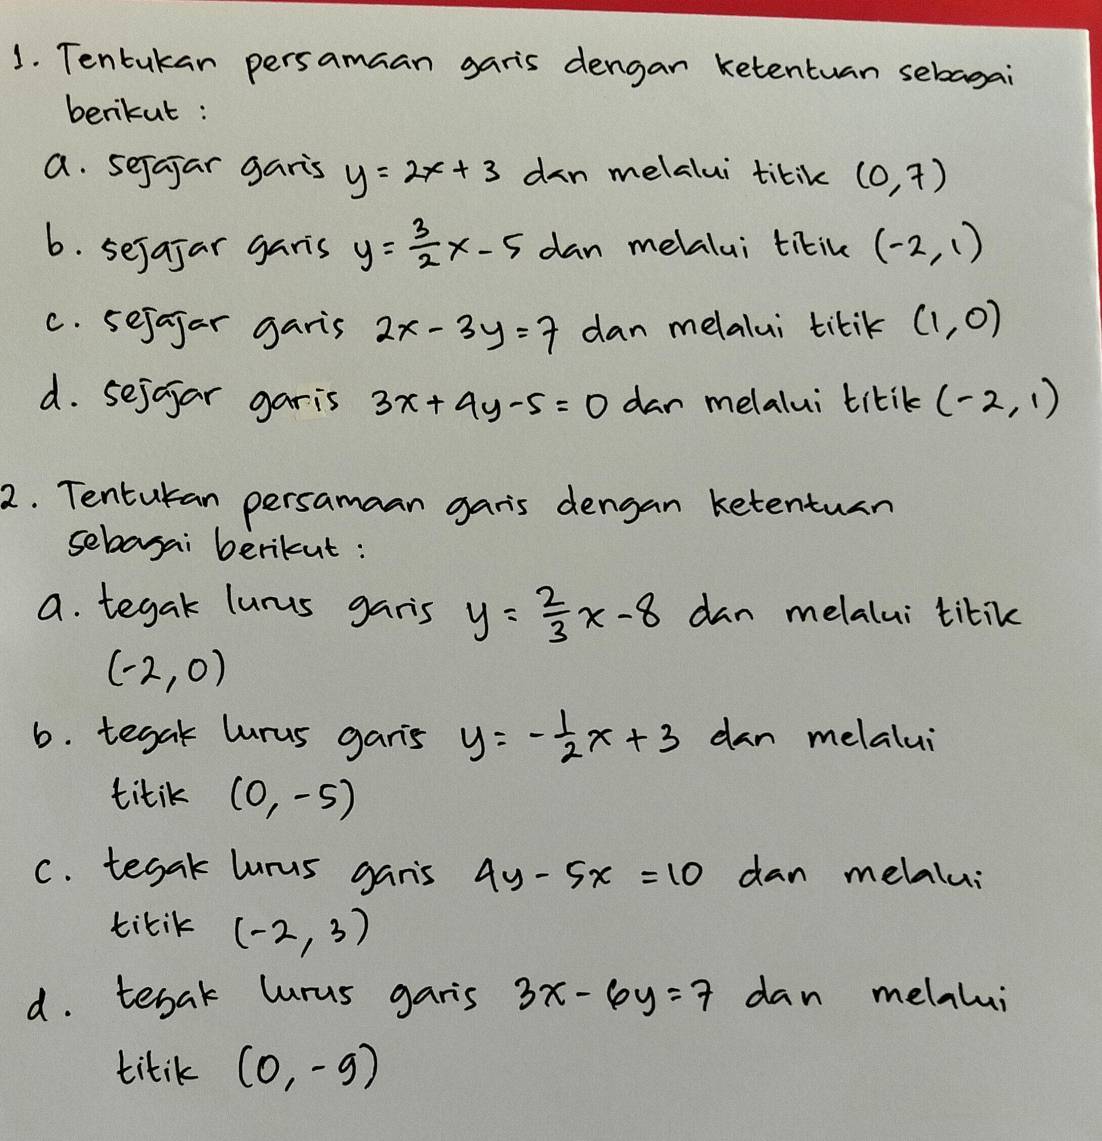 1. Tentukan persamaan garis dengan ketentuan sebagai
berikut :
a. sejajar garis y = 2x + 3 dan melalui titik (0, 7)
b. sejajar garis y = 3/2 x - 5 dan melalui titik (-2, 1)
c. sejajar garis 2x - 3y = 7 dan melalui titik (1, 0)
d. sejajar garis 3x + 4y - 5 = 0 dan melalui titik (-2, 1)
2. Tentukan persamaan garis dengan ketentuan
sebagai berikut :
a. tegak lurus garis y = 2/3 x - 8 dan melalui titik
(-2, 0)
b. tegak lurus garis y = - 1/2 x + 3 dan melalui
titik (0, -5)
c. tegak lurus garis 4y - 5x = 10 dan melalui
titik (-2, 3)
d. tegak lurus garis 3x - 6y = 7 dan melalui
titik (0, -9)